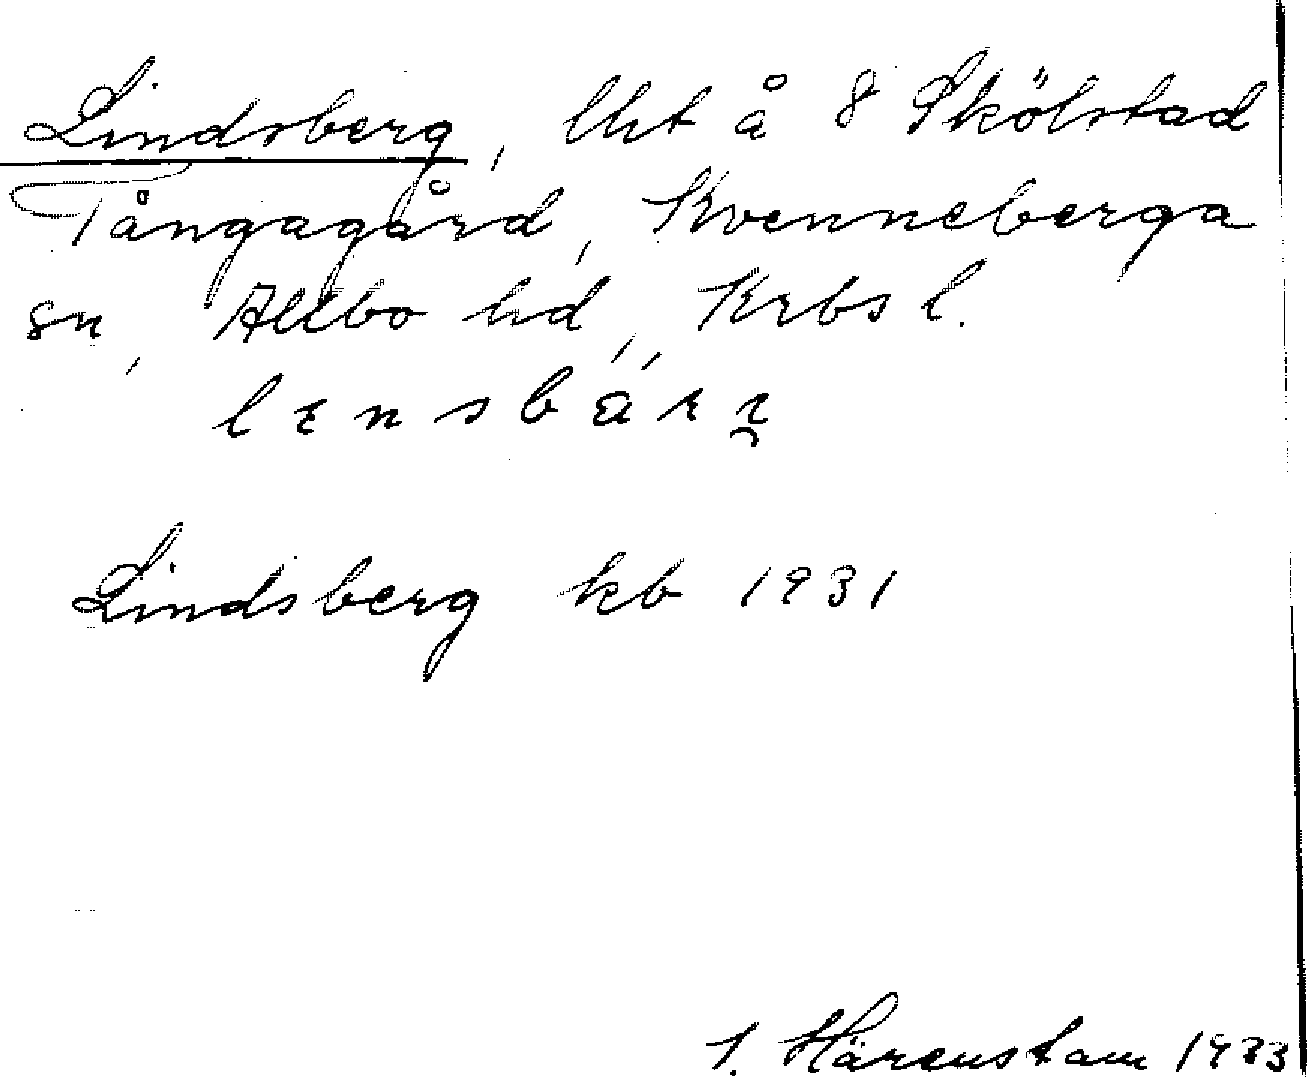 Lindsberg, lht å 8 Skölstad
Tångagård, Kvenneberga
sn, Allbo hd, Krbs l.
Lindsberg kb 1931
I. Härenstam 1933